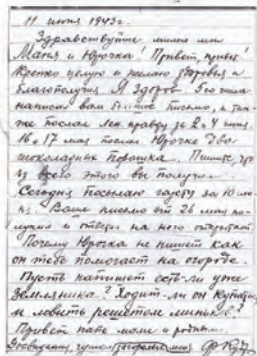 11 июня 1943 г.
Здравствуйте милые мои
Маня и Юрочка! Привет привет!
Крепко целую и желаю здоровья и
благополучия. Я здоров. 8го числа
написал вам большое письмо, а так-
же послал Лен. правду за 2 и 4 июня.
16 и 17 мая послал Юрочке два
шоколадных порошка. Пишите, что
из всего этого вы получили.
Сегодня посылаю газету за 10 ию-
ня. Ваше письмо от 26 мая по-
лучил и ответил на него открыткой.
Почему Юрочка не пишет как
он тебе помогает на огороде.
Пусть напишет есть-ли уже
земляника? Ходит-ли он купаться
и ловить решетом миньков?
Привет папе маме и родным.
До свидания, целую